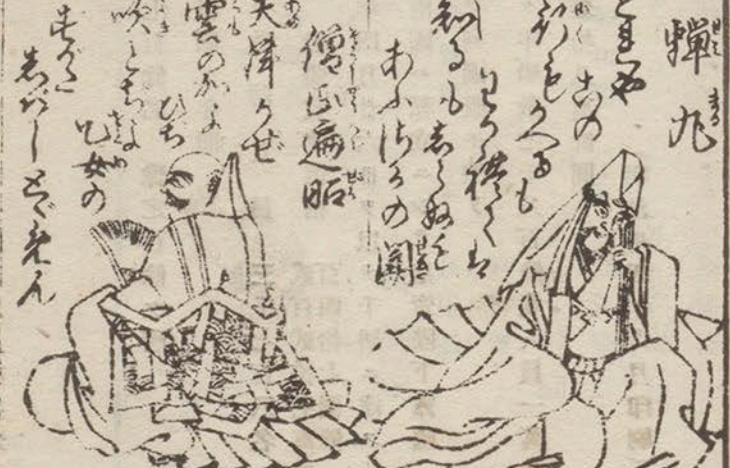 蟬丸
これや
この
行もかへるも
わかれては
知るもしらぬも
あふさかの関
僧正遍昭
天津かぜ
雲のかよ
ひぢ
吹とぢよ
乙女の
すがた
しばしとゞめん